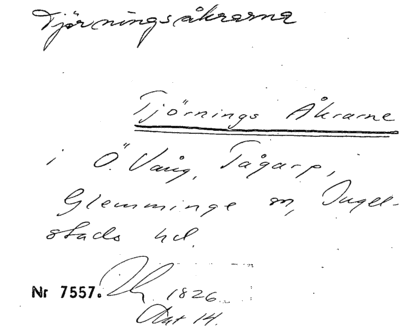 Tjörningsåkrarna
Tjörnings Åkrarne
i Ö. Vång, Tågarp,
Glemminge sn, Ingel-
stads hd.
Nr 7557. 1826
Akt 14.